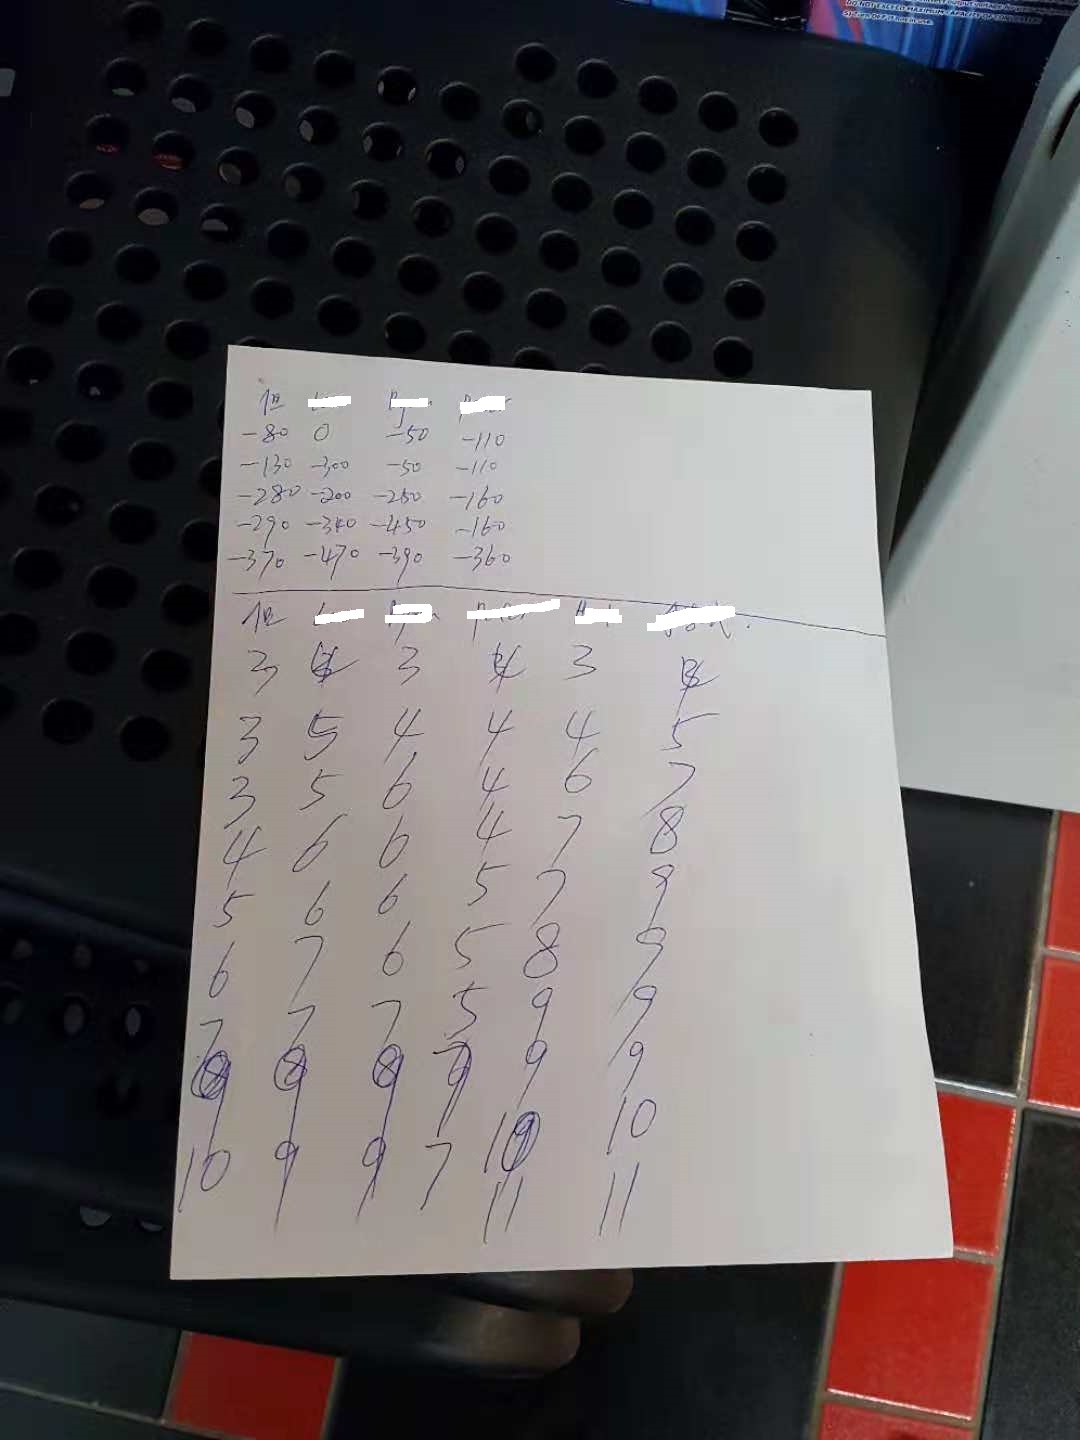 DO NOT EXCEED MAXIMUM CAPACITY OF CONVERTER
-80 0 -50 -110
-130 -300 -50 -110
-280 -200 -250 -160
-290 -340 -450 -160
-370 -470 -390 -360
3 3 3
3 5 4 4 4 5
3 5 6 4 6 7
4 6 6 4 7 8
5 6 6 5 7 9
6 7 6 5 8 9
7 7 7 5 9 9
9 9 9 9 9 9
10 9 9 7 10 10
11 11